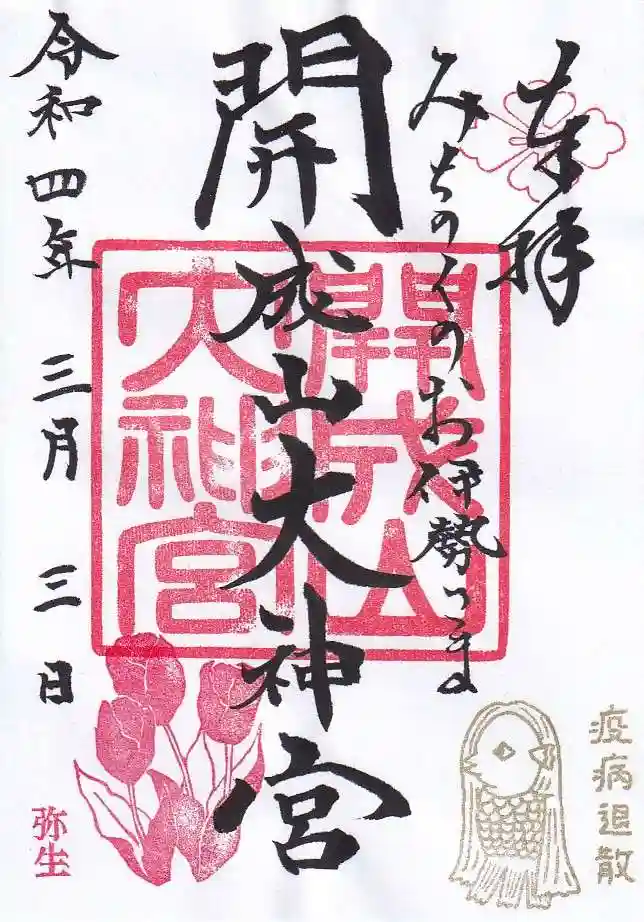 奉拝
みちのくのお伊勢さま
開成山大神宮
開成山
大神宮
令和四年 三月 三日
弥生
疫病退散